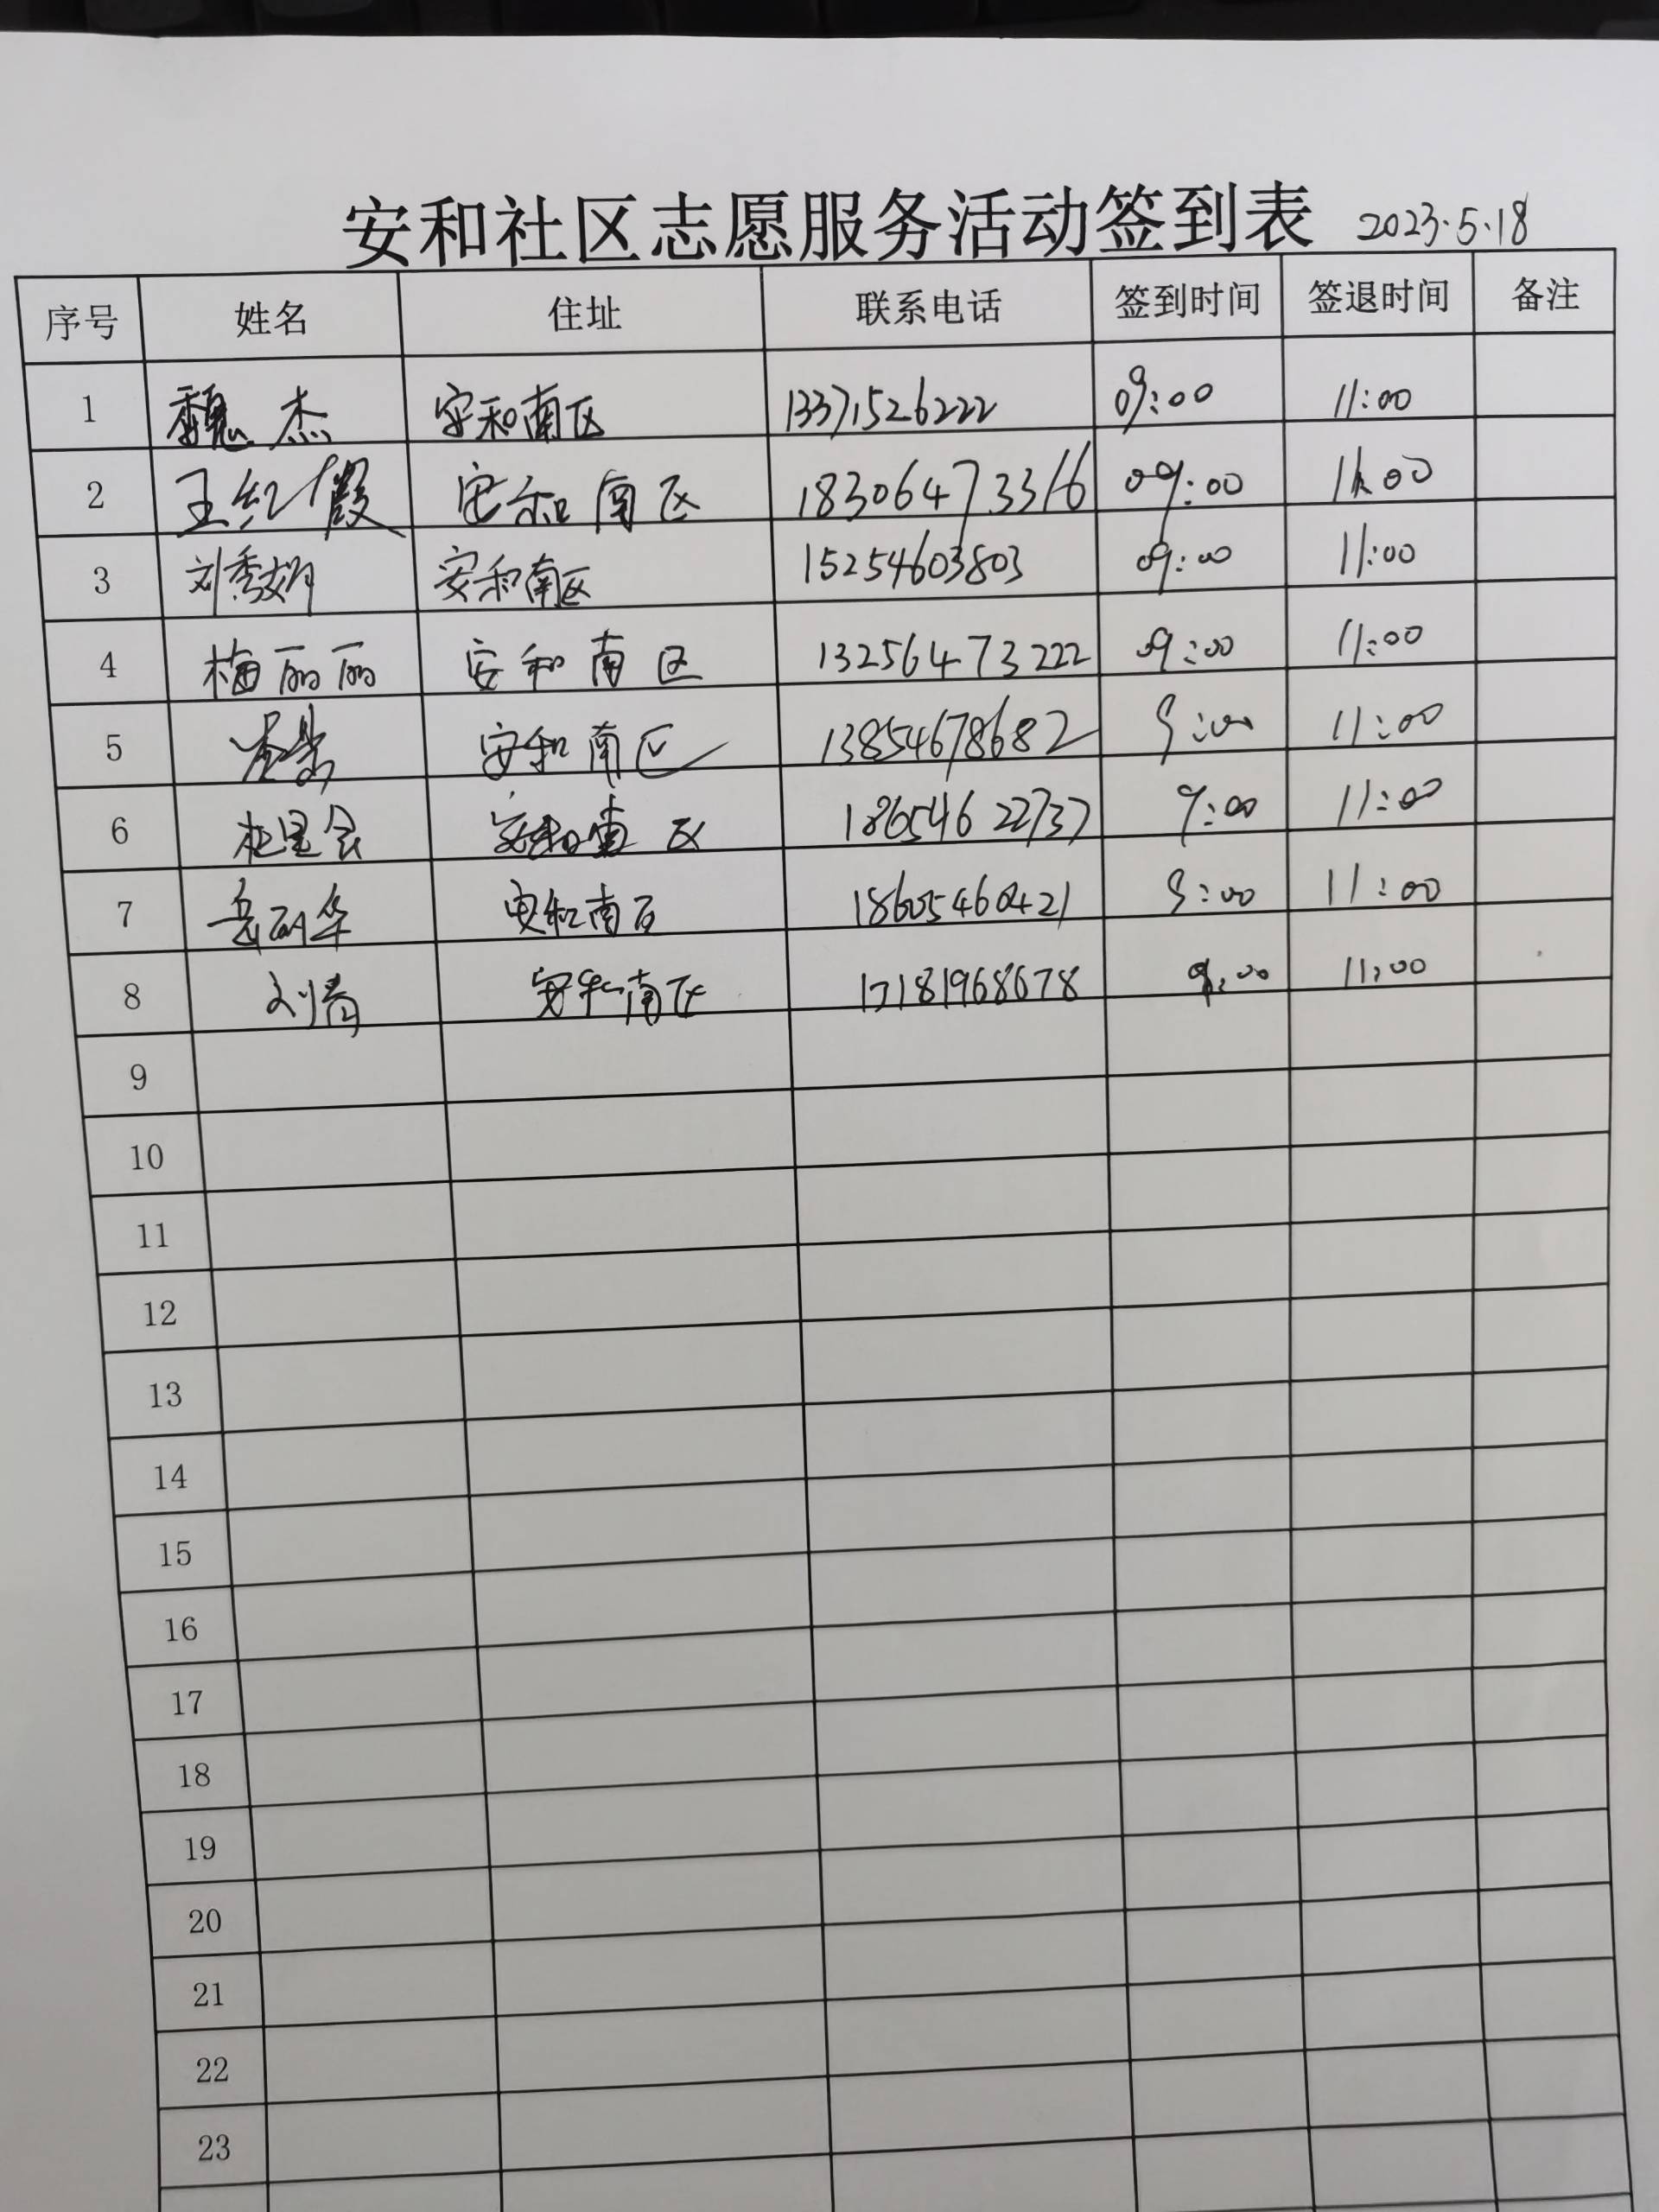 安和社区志愿服务活动签到表 2023.5.18
序号 姓名 住址 联系电话 签到时间 签退时间 备注
1 魏杰 安和南区 13371526222 09:00 11:00
2 王红霞 安和南区 18306473316 09:00 11:00
3 刘秀娟 安和南区 15254603803 09:00 11:00
4 梅丽丽 安和南区 13256473222 09:00 11:00
5 安和南区 13854678682 9:00 11:00
6 安和南区 18654622737 9:00 11:00
7 岳丽华 安和南区 18605460421 9:00 11:00
8 刘青 安和南区 17181968678 9:00 11:00
9
10
11
12
13
14
15
16
17
18
19
20
21
22
23